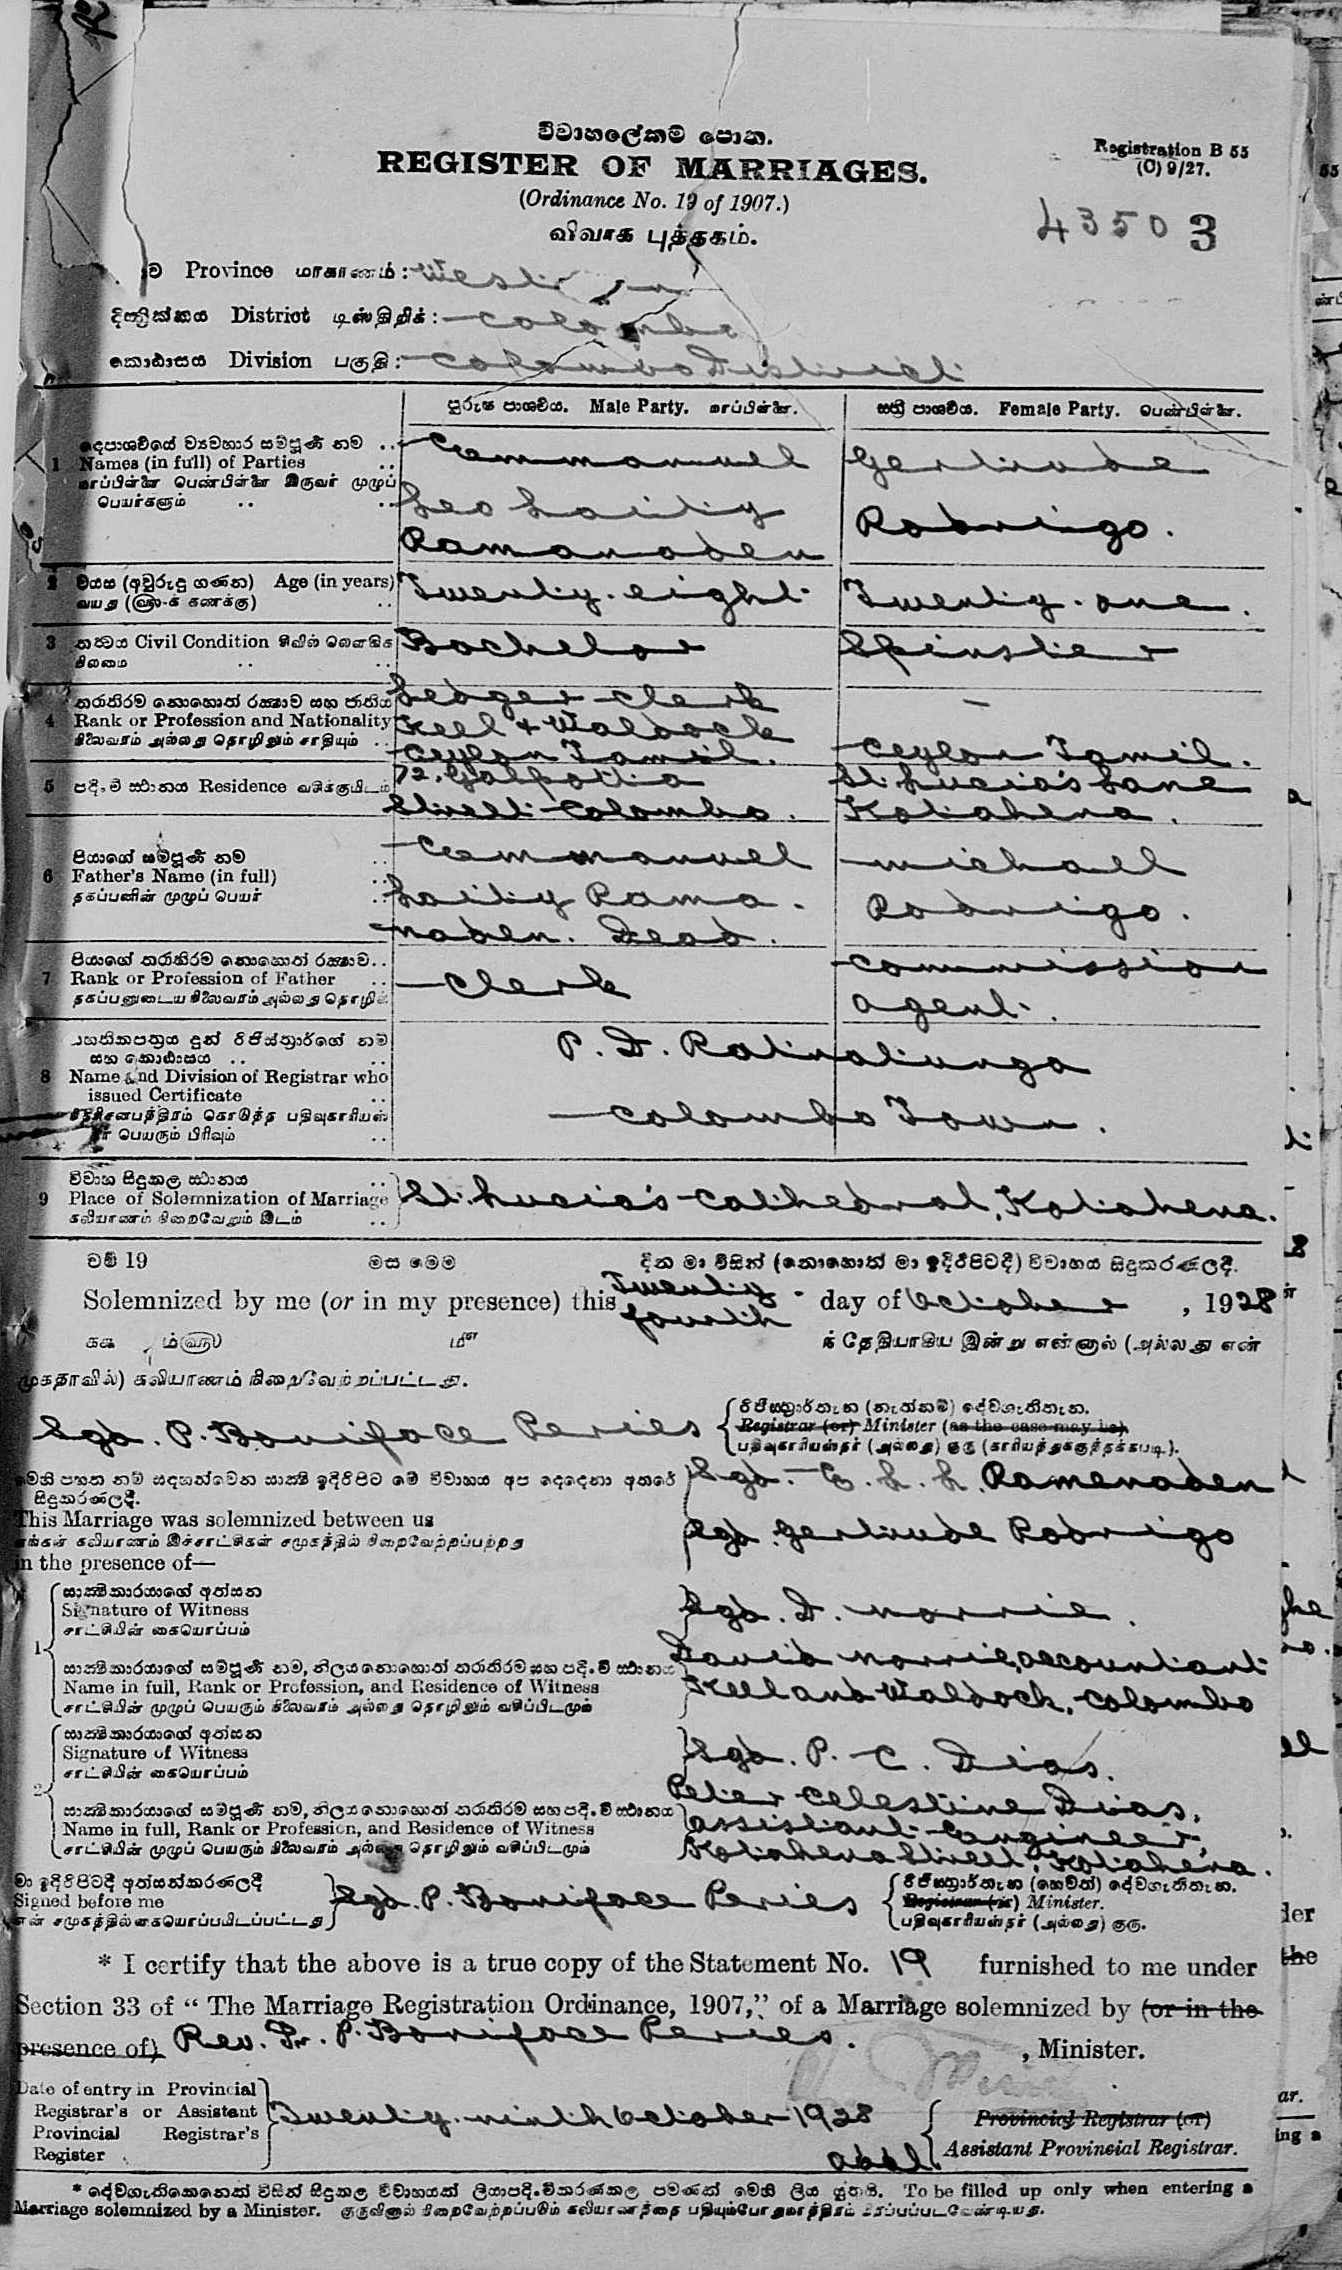 විවාහලේකම් පොත.
REGISTER OF MARRIAGES.
Registration B 55
(C) 9/27.
(Ordinance No. 19 of 1907.)
விவாக புத்தகம்.
43503
Province மாகாணம்: Western
දිස්ත්‍රික්කය District டிஸ்திறிக்: Colombo
කොඨාසය Division பகுதி: Colombo District
පුරුෂ පාශ්වීය. Male Party. மாப்பிள்ளை.
ස්ත්‍රී පාශ්වීය. Female Party. பெண்பிள்ளை.
1 Names (in full) of Parties
மாப்பிள்ளை பெண்பிள்ளை இருவர் முழுப்
பெயர்களும்
Emmanuel
Leo Laity
Ramanaden
Gertrude
Rodrigo.
2 වයස (අවුරුදු ගණන) Age (in years)
Twenty-eight
Twenty-one.
3 තත්වය Civil Condition சிவில் லௌகிக
நிலமை
Bachelor
Spinster
4 Rank or Profession and Nationality
நிலைவரம் அல்லது தொழிலும் சாதியும்
Ledger Clerk
Keell & Waldock
Ceylon Tamil.
–
Ceylon Tamil.
5 පදිංචි ස්ථානය Residence வசிக்குமிடம்
72, Galpotta
Street Colombo.
St. Lucia's Lane
Kotahena.
6 පියාගේ සම්පූණි නම
Father's Name (in full)
தகப்பனின் முழுப் பெயர்
Emmanuel
Laity Rama-
naden. Dead.
Michael
Rodrigo.
7 පියාගේ තරාතිරම නොහොත් රක්ෂාව
Rank or Profession of Father
தகப்பனுடைய நிலைவரம் அல்லது தொழில்
Clerk
Commission
Agent.
8 සහ කොඨාසය
Name and Division of Registrar who
issued Certificate
பெயரும் பிரிவும்
P. D. Ratnatunga
Colombo Town.
9 විවාහ සිදුකල ස්ථානය
Place of Solemnization of Marriage
கலியாணம் நிறைவேறும் இடம்
St. Lucia's Cathedral, Kotahena.
වර්ෂ 19 මස මෙම දින මා විසින් (නොහොත් මා ඉදිරිපිටදී) විවාහය සිදුකරණලදී.
Solemnized by me (or in my presence) this Twenty-fourth day of October, 1928
ந் தேதியாகிய இன்று என்னால் (அல்லது என்
முகதாவில்) கலியாணம் நிறைவேற்றப்பட்டது.
Sgd. P. Boniface Peries
රිජිස්ත්‍රාර්තැන (නැත්නම්) දේවගැතිතැන.
Registrar (or) Minister (as the case may be).
பதிவுகாரியஸ்தர் (அல்லது) குரு (காரியத்துக்குத்தக்கபடி).
මෙහි පහත නම් සඳහන්වෙන සාක්ෂි ඉදිරිපිට මේ විවාහය අප දෙදෙනා අතරේ
සිදුකරණලදී.
This Marriage was solemnized between us
எங்கள் கலியாணம் இச்சாட்சிகள் சமுகத்தில் நிறைவேற்றப்பற்றது
in the presence of—
Sgd. E. L. L. Ramenaden
Sgd. Gertrude Rodrigo
1 සාක්ෂිකාරයාගේ අත්සන
Signature of Witness
சாட்சியின் கையொப்பம்
Sgd. D. Norrie.
Name in full, Rank or Profession, and Residence of Witness
சாட்சியின் முழுப் பெயரும் நிலைவரம் அல்லது தொழிலும் வசிப்பிடமும்
David Norrie, Accountant
Keell and Waldock, Colombo
2 සාක්ෂිකාරයාගේ අත්සන
Signature of Witness
சாட்சியின் கையொப்பம்
Sgd. P. C. Dias.
Name in full, Rank or Profession, and Residence of Witness
சாட்சியின் முழுப் பெயரும் நிலைவரம் அல்லது தொழிலும் வசிப்பிடமும்
Peter Celestine Dias,
Assistant Engineer,
Kotahena Street, Kotahena.
මා ඉදිරිපිටදී අත්සන්කරණලදී
Signed before me
என் சமுகத்தில் கையொப்பமிடப்பட்டது
Sgd. P. Boniface Peries
රිජිස්ත්‍රාර්තැන (හෙවත්) දේවගැතිතැන.
Registrar (or) Minister.
பதிவுகாரியஸ்தர் (அல்லது) குரு.
* I certify that the above is a true copy of the Statement No. 19 furnished to me under
Section 33 of “The Marriage Registration Ordinance, 1907,” of a Marriage solemnized by (or in the
presence of) Rev. Fr. P. Boniface Peries., Minister.
Date of entry in Provincial
Registrar's or Assistant
Provincial Registrar's
Register
Twenty-ninth October 1928
Addl.
Provincial Registrar (or)
Assistant Provincial Registrar.
To be filled up only when entering a
Marriage solemnized by a Minister.